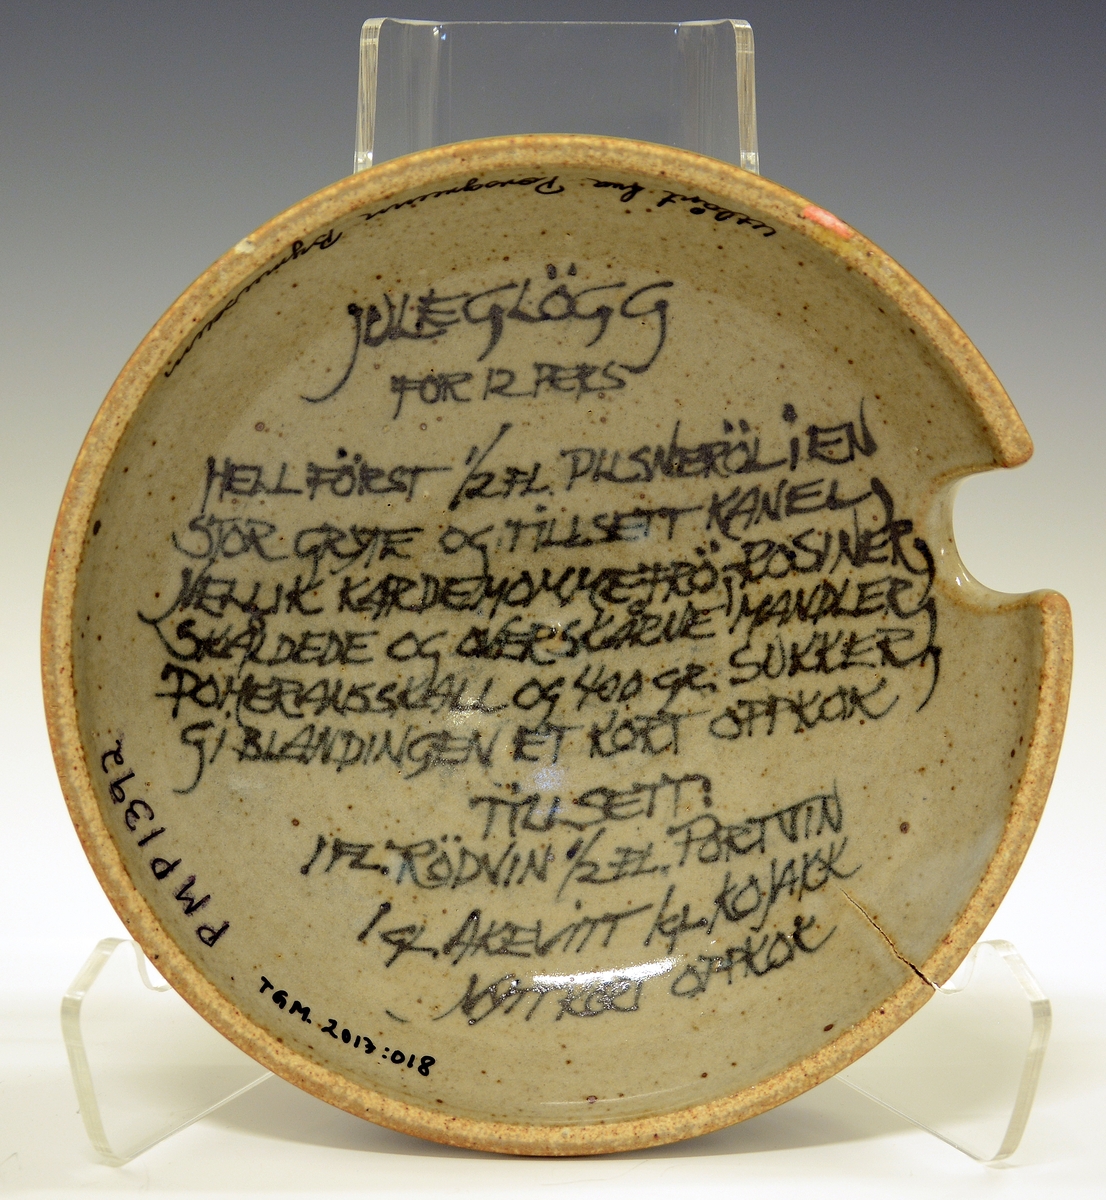 JULEGLÖGG
FOR 12 PERS
HELL FÖRST 1/2 FL. PILSNERÖL i EN
STOR GRYTE OG TILLSETT KANEL,
NELLIK KARDEMOMMEFRÖ, ROSINER,
SKÅLDEDE OG OVERSKÅRNE MANDLER,
POMERANSSKALL OG 400 GR. SUKKER,
GI BLANDINGEN ET KORT OPPKOK
TILLSETT:
1 FL. RÖDVIN 1/2 FL. PORTVIN
1 GL. AKEVITT 1 GL. KOJAKK
NYTT KORT OPPKOK
utlånt fra Porsgrunn Bymuseum
PMP1392
TGM. 2013:018